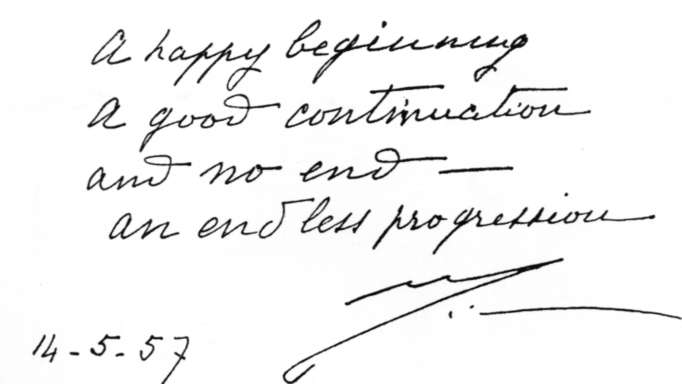 A happy beginning
A good continuation
and no end —
an endless progression
14-5-57